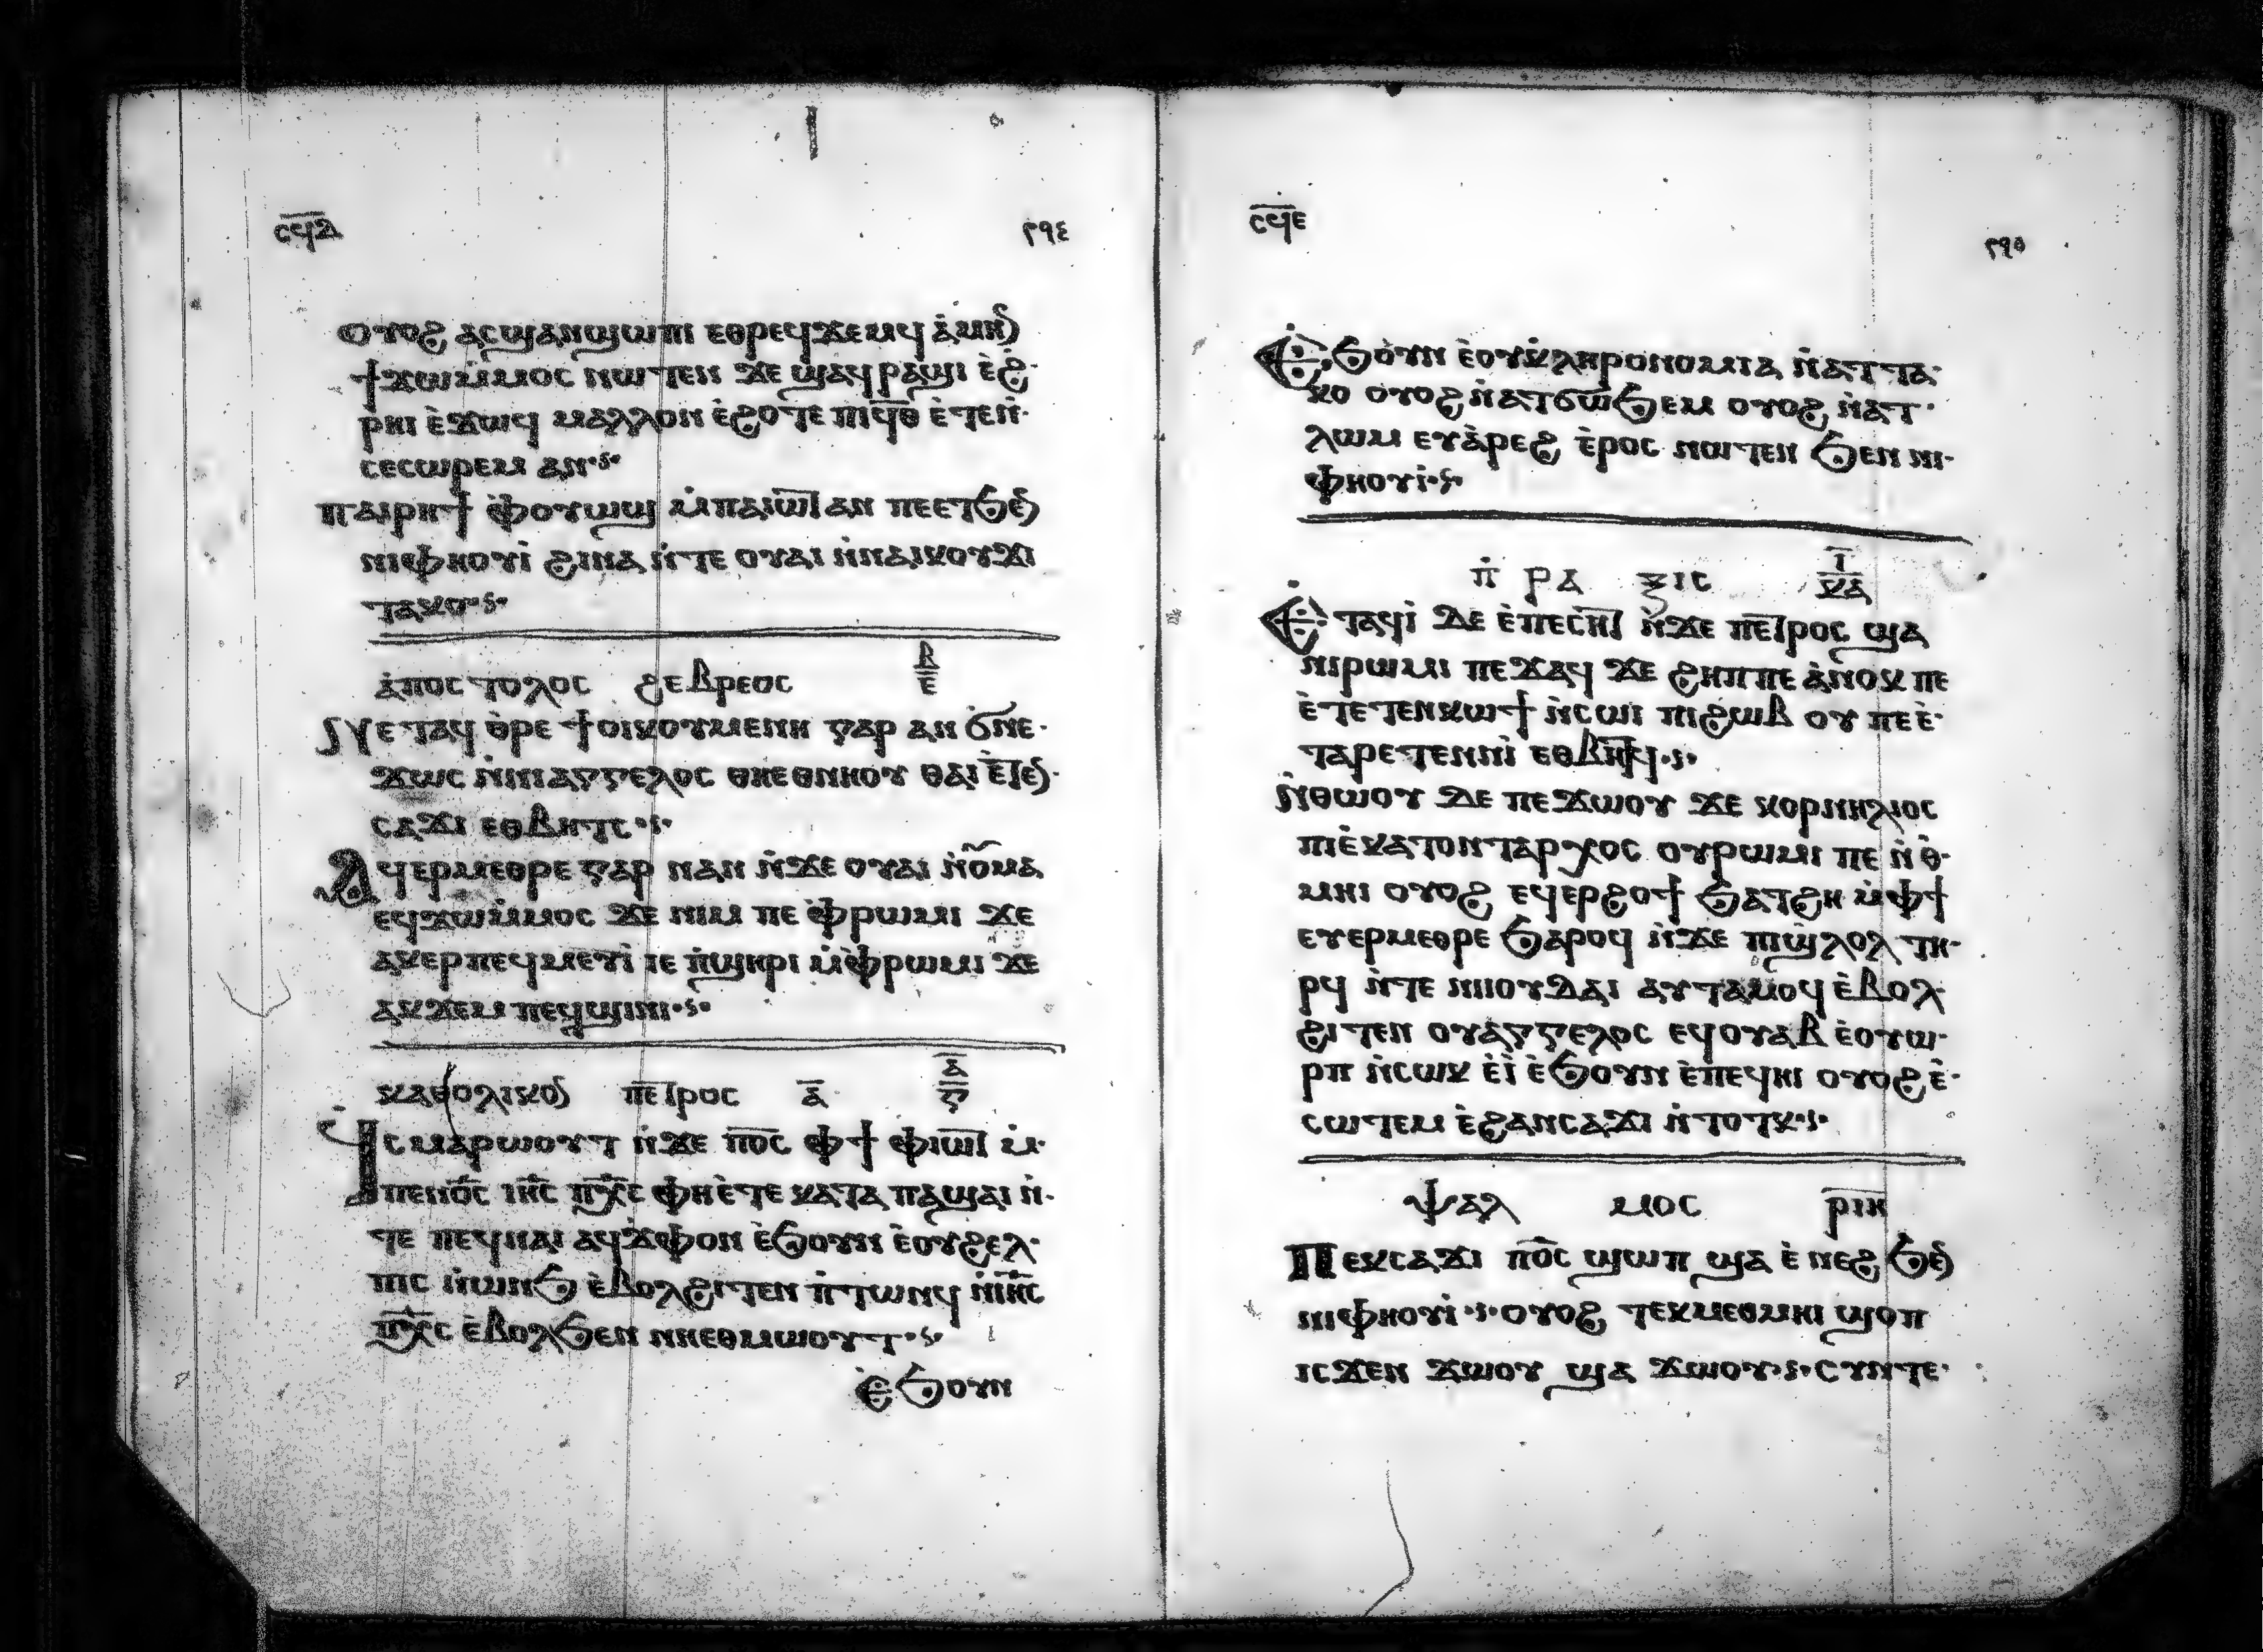 ⲥϥⲇ ٢٩٤
ⲟⲩⲟϩ ⲁⲥϣⲁⲛϣⲱⲡⲓ ⲉⲑⲣⲉϥϫⲉⲙϥ ⲁ̀ⲙⲏⲛ
ϯϫⲱⲙ̀ⲙⲟⲥ ⲛⲱⲧⲉⲛ ϫⲉ ϣⲁϥⲣⲁϣⲓ ⲉ̀ϩ·
ⲣⲏⲓ ⲉ̀ϫⲱϥ ⲙⲁⲗⲗⲟⲛ ⲉ̀ϩⲟⲧⲉ ⲡⲓϥ̅ⲑ̅ ⲉ̀ⲧⲉⲛ̀·
ⲥⲉⲥⲱⲣⲉⲙ ⲁⲛ·ⲋ·
ⲡⲁⲓⲣⲏϯ ⲫ̀ⲟⲩⲱϣ ⲙ̀ⲡⲁⲓⲱ̅ⲧ ⲁⲛ ⲡⲉⲉⲧϧⲉⲛ
ⲛⲓⲫⲏⲟⲩⲓ̀ ϩⲓⲛⲁ ⲛ̀ⲧⲉ ⲟⲩⲁⲓ ⲛ̀ⲛⲁⲓⲕⲟⲩϫⲓ
ⲧⲁⲕⲟ·ⲋ·
ⲁ̀ⲡⲟⲥⲧⲟⲗⲟⲥ ϩⲉⲃⲣⲉⲟⲥ ⲃ̅ ⲉ̅
ⲛⲉⲧⲁϥ ⲑ̀ⲣⲉ ϯⲟⲓⲕⲟⲩⲙⲉⲛⲏ ⲅⲁⲣ ⲁⲛ ϭ̀ⲛⲉ·
ϫⲱⲥ ⲛ̀ⲛⲓⲁⲅⲅⲉⲗⲟⲥ ⲑⲏⲉⲑⲛⲏⲟⲩ ⲑⲁⲓ ⲉ̀ⲧⲉⲛ·
ⲥⲁϫⲓ ⲉⲑⲃⲏⲧⲥ·ⲋ·
ⲁϥⲉⲣⲙⲉⲑⲣⲉ ⲅⲁⲣ ⲛⲁⲛ ⲛ̀ϫⲉ ⲟⲩⲁⲓ ⲛ̀ⲟⲩⲙⲁ
ⲉϥϫⲱⲙ̀ⲙⲟⲥ ϫⲉ ⲛⲓⲙ ⲡⲉ ⲫ̀ⲣⲱⲙⲓ ϫⲉ
ⲁⲕⲉⲣⲡⲉϥⲙⲉⲩⲓ̀ ⲓⲉ ⲡ̀ϣⲏⲣⲓ ⲙ̀ⲫ̀ⲣⲱⲙⲓ ϫⲉ
ⲁⲕϫⲉⲙ ⲡⲉϥϣⲓⲛⲓ·ⲋ·
ⲕⲁⲑⲟⲗⲓⲕⲟⲛ ⲡⲉ̅ⲧⲣⲟⲥ ⲁ̅ ⲁ̅ ⲅ̅
ϥⲥⲙⲁⲣⲱⲟⲩⲧ ⲛ̀ϫⲉ ⲡⲟ̅ⲥ̅ ⲫϯ ⲫⲓⲱ̅ⲧ ⲙ̀·
ⲡⲉⲛⲟ̅ⲥ̅ ⲓⲏ̅ⲥ̅ ⲡⲭ̅ⲥ̅ ⲫⲏⲉ̀ⲧⲉ ⲕⲁⲧⲁ ⲡⲁϣⲁⲓ ⲛ̀·
ⲧⲉ ⲡⲉϥⲛⲁⲓ ⲁϥϫⲫⲟⲛ ⲉ̀ϧⲟⲩⲛ ⲉ̀ⲟⲩϩⲉⲗ·
ⲡⲓⲥ ⲛ̀ⲱⲛϧ ⲉ̀ⲃⲟⲗϩⲓⲧⲉⲛ ⲡ̀ⲧⲱⲛϥ ⲛ̀ⲓⲏ̅ⲥ̅
ⲡⲭ̅ⲥ̅ ⲉ̀ⲃⲟⲗϧⲉⲛ ⲛⲏⲉⲑⲙⲱⲟⲩⲧ·ⲋ·
ⲉ̀ϧⲟⲩⲛ
ⲥϥⲉ ٢٩٥
ⲉ̀ϧⲟⲩⲛ ⲉ̀ⲟⲩⲕ̀ⲗⲏⲣⲟⲛⲟⲙⲓⲁ ⲛ̀ⲁⲧⲧⲁ·
ⲕⲟ ⲟⲩⲟϩ ⲛ̀ⲁⲧϭⲱϧⲉⲙ ⲟⲩⲟϩ ⲛ̀ⲁⲧ·
ⲗⲱⲙ ⲉⲩⲁ̀ⲣⲉϩ ⲉ̀ⲣⲟⲥ ⲛⲱⲧⲉⲛ ϧⲉⲛ ⲛⲓ·
ⲫⲏⲟⲩⲓ̀·ⲋ·
ⲡ̀ⲣⲁⲝⲓⲥ ⲓ̅ ⲕ̅ⲁ̅
ⲉⲧⲁϥⲓ̀ ⲇⲉ ⲉ̀ⲡⲉⲥⲏ̅ⲧ ⲛ̀ϫⲉ ⲡⲉ̅ⲧⲣⲟⲥ ϣⲁ
ⲛⲓⲣⲱⲙⲓ ⲡⲉϫⲁϥ ϫⲉ ϩⲏⲡⲡⲉ ⲁ̀ⲛⲟⲕ ⲡⲉ
ⲉ̀ⲧⲉⲧⲉⲛⲕⲱϯ ⲛ̀ⲥⲱⲓ ⲡⲓϩⲱⲃ ⲟⲩ ⲡⲉ ⲉ̀·
ⲧⲁⲣⲉⲧⲉⲛⲛⲓ̀ ⲉⲑⲃⲏⲧϥ·ⲋ·
ⲛ̀ⲑⲱⲟⲩ ⲇⲉ ⲡⲉϫⲱⲟⲩ ϫⲉ ⲕⲟⲣⲛⲏⲗⲓⲟⲥ
ⲡⲓⲉ̀ⲕⲁⲧⲟⲛⲧⲁⲣⲭⲟⲥ ⲟⲩⲣⲱⲙⲓ ⲡⲉ ⲛ̀ⲑ̀·
ⲙⲏⲓ ⲟⲩⲟϩ ⲉϥⲉⲣϩⲟϯ ϧⲁⲧϩⲏ ⲙ̀ⲫϯ
ⲉⲩⲉⲣⲙⲉⲑⲣⲉ ϧⲁⲣⲟϥ ⲛ̀ϫⲉ ⲡⲓϣ̀ⲗⲟⲗ ⲧⲏ·
ⲣϥ ⲛ̀ⲧⲉ ⲛⲓⲓⲟⲩⲇⲁⲓ ⲁⲩⲧⲁⲙⲟϥ ⲉ̀ⲃⲟⲗ·
ϩⲓⲧⲉⲛ ⲟⲩⲁⲅⲅⲉⲗⲟⲥ ⲉϥⲟⲩⲁⲃ ⲉ̀ⲟⲩⲱ·
ⲣⲡ ⲛ̀ⲥⲱⲕ ⲉ̀ⲓ̀ ⲉ̀ϧⲟⲩⲛ ⲉ̀ⲡⲉϥⲏⲓ ⲟⲩⲟϩ ⲉ̀·
ⲥⲱⲧⲉⲙ ⲉ̀ϩⲁⲛⲥⲁϫⲓ ⲛ̀ⲧⲟⲧⲕ·ⲋ·
ⲯⲁⲗⲙⲟⲥ ⲣ̅ⲓ̅ⲏ̅
ⲡⲉⲕⲥⲁϫⲓ ⲡⲟ̅ⲥ̅ ϣⲱⲡ ϣⲁ ⲉ̀ⲛⲉϩ ϧⲉⲛ
ⲛⲓⲫⲏⲟⲩⲓ̀·ⲋ·ⲟⲩⲟϩ ⲧⲉⲕⲙⲉⲑⲙⲏⲓ ϣⲟⲡ
ⲓⲥϫⲉⲛ ϫⲱⲟⲩ ϣⲁ ϫⲱⲟⲩ·ⲋ·ⲥⲩⲛⲧⲉ·